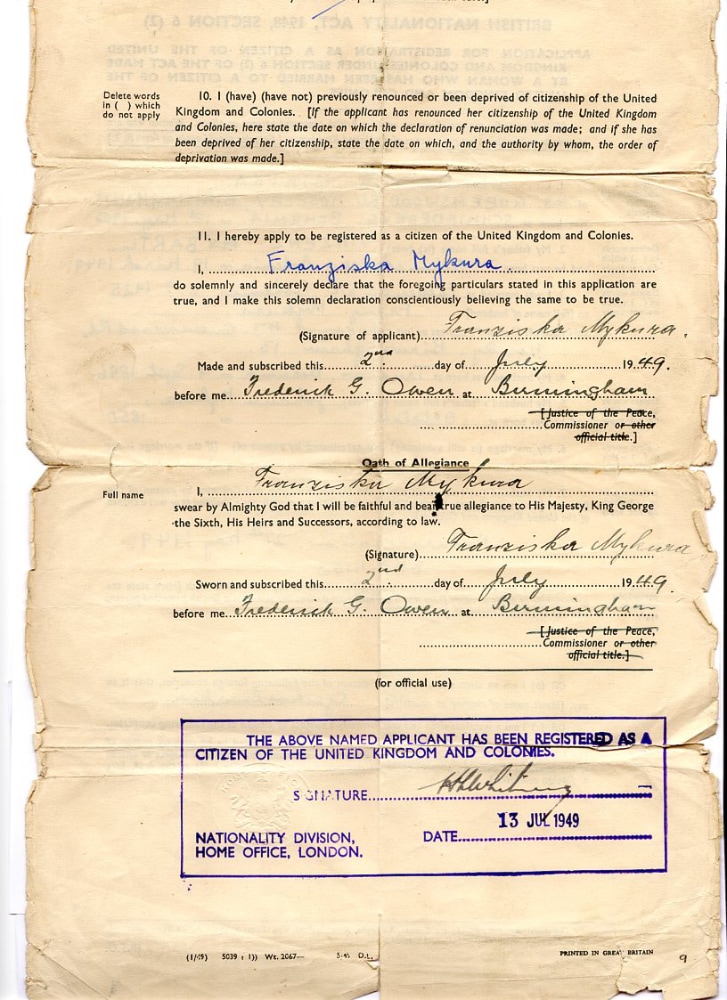 Delete words
in ( ) which
do not apply
10. I (have) (have not) previously renounced or been deprived of citizenship of the United
Kingdom and Colonies. [If the applicant has renounced her citizenship of the United Kingdom
and Colonies, here state the date on which the declaration of renunciation was made; and if she has
been deprived of her citizenship, state the date on which, and the authority by whom, the order of
deprivation was made.]
11. I hereby apply to be registered as a citizen of the United Kingdom and Colonies.
I, Franziska Mykura.
do solemnly and sincerely declare that the foregoing particulars stated in this application are
true, and I make this solemn declaration conscientiously believing the same to be true.
(Signature of applicant) Franziska Mykura.
Made and subscribed this 2nd. day of July 1949.
before me Frederick G. Owen at Birmingham
[Justice of the Peace,
Commissioner or other
official title.]
Oath of Allegiance
Full name
I, Franziska Mykura
swear by Almighty God that I will be faithful and bear true allegiance to His Majesty, King George
the Sixth, His Heirs and Successors, according to law.
(Signature) Franziska Mykura
Sworn and subscribed this 2nd day of July 1949.
before me Frederick G. Owen at Birmingham
[Justice of the Peace,
Commissioner or other
official title.]
(for official use)
THE ABOVE NAMED APPLICANT HAS BEEN REGISTERED AS A
CITIZEN OF THE UNITED KINGDOM AND COLONIES.
SIGNATURE
13 JUL 1949
NATIONALITY DIVISION, DATE
HOME OFFICE, LONDON.
5039 Wt. 2067— D.L.
PRINTED IN GREAT BRITAIN
9